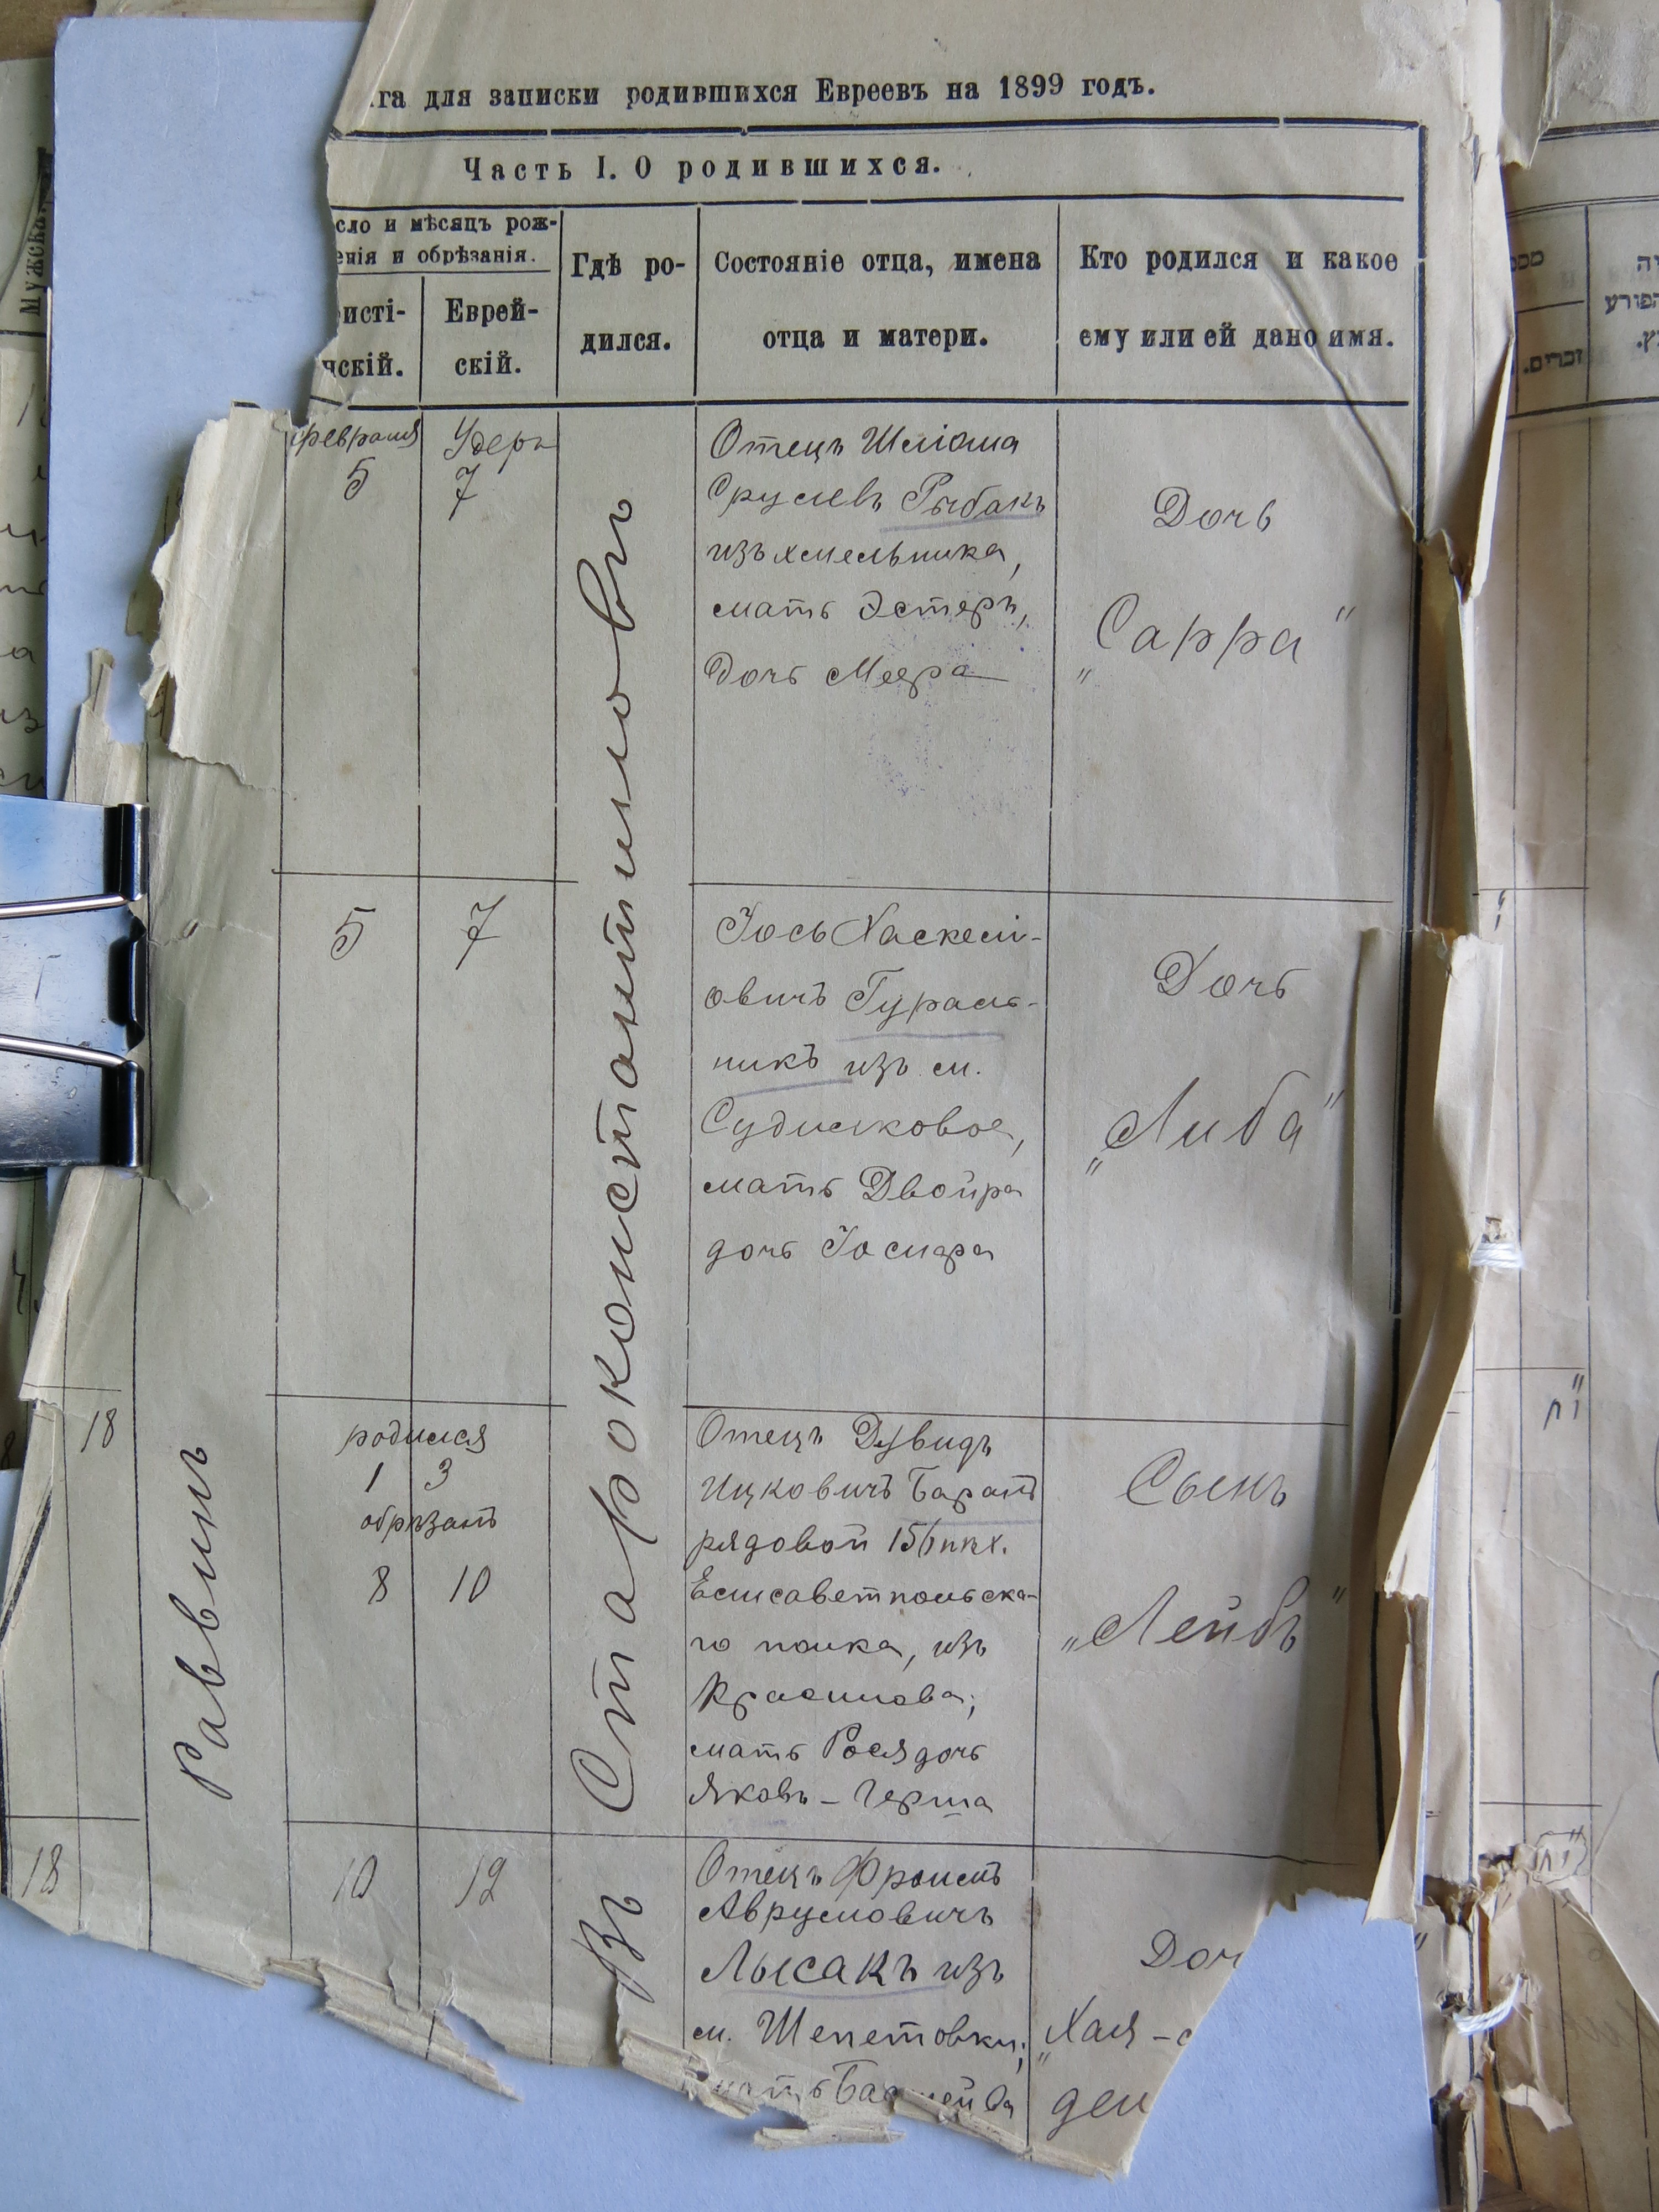 га для записки родившихся Евреевъ на 1899 годъ.
Часть I. О родившихся.
сло и мѣсяцъ рож-
енія и обрѣзанія.
исті-
нскій.
Еврей-
скій.
Гдѣ ро-
дился.
Состояніе отца, имена
отца и матери.
Кто родился и какое
ему или ей дано имя.
Мужска
февраля
5
Удеръ
7
Отецъ Шліома
Срулевъ Рыбакъ
изъ Хмельника,
мать Эстеръ,
дочь Меера
Дочь
„Сарра"
5
7
Іось Хаскели-
овичъ Гураль-
никъ изъ м.
Судилковоа,
мать Двойра
дочь
Дочь
„Либа"
18
родился
1 3
обрѣзанъ
8 10
Отецъ Дувидъ
Ицковичъ Баранъ
рядовой 156 пѣх.
Елисаветпольска-
го полка, изъ
Красилова,
мать Рося дочь
Яковъ-Герша
Сынъ
„Лейбъ"
18
10
12
Отецъ Фроимъ
Аврумовичъ
Лысакъ изъ
м. Шепетовки,
мать
Доч
„Хая -
Раввинъ
Въ Староконстантиновѣ